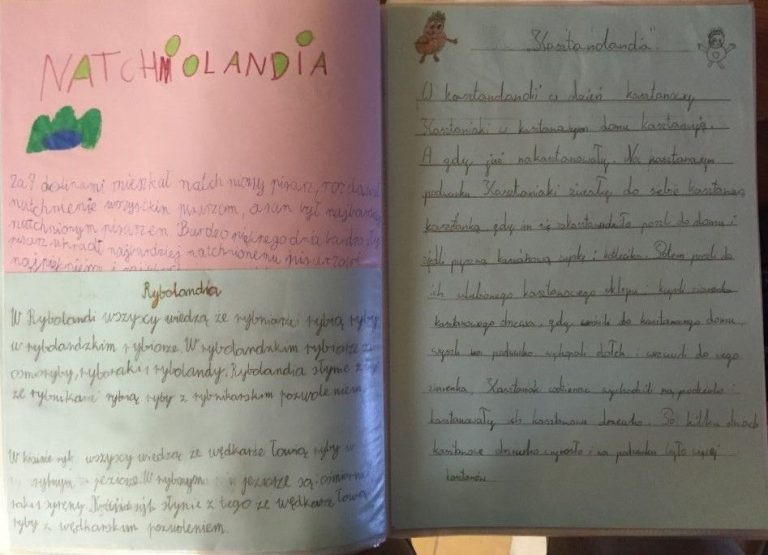 NATCHNIOLANDIA
Za 7 dolinami mieszkał natchniony pisarz, rozdawał
natchnienie wszystkim pisarzom, a sam był najbardziej
natchnionym pisarzem. Pewnego dnia bardzo zły
pisarz ukradł najbardziej natchnionemu pisarzowi
najpiękniejsze
Rybolandia
W Rybolandi wszyscy wiedzą że rybniarze rybią ryby
w rybolandzkim rybiorze. W rybolandzkim rybiorze są
osmoryby, ryboraki i rybolandy. Rybolandia słynie z
że rybnikarze rybią ryby z rybnikarskim pozwoleniem.
W krainie ryb wszyscy wiedzą że wędkarze łowią ryby w
rybnym jeziorze. W rybnym jeziorze są: ośmiornice
raki i syreny. Kraina ryb słynie z tego że wędkarze łowią
ryby z wędkarskim pozwoleniem.
"Kasztanolandia".
W kasztanolandii w dzień kasztanowy
Kasztaniaki w kasztanowym domu kasztanują.
A gdy już nakasztanowały. Na kasztanowym
podwórku Kasztaniaki do siebie kasztanową
kasztankę, gdy im się zakasztanowało poszli do domu i
zjedli pyszną kasztanową zupkę i kotleciki. Potem poszli do
ich ulubionego kasztanowego sklepu i kupili ziarenka
kasztanowego drzewa, gdy wrócili do kasztanowego domu,
wyszli na podwórko wykopali dołek i wrzucili do niego
ziarenka. Kasztaniaki codziennie wychodzili na podwórko i
kasztanowały ich kasztanowe drzewko. Po kilku dniach
kasztanowe drzewko wyrosło i na podwórku było więcej
kasztanów.